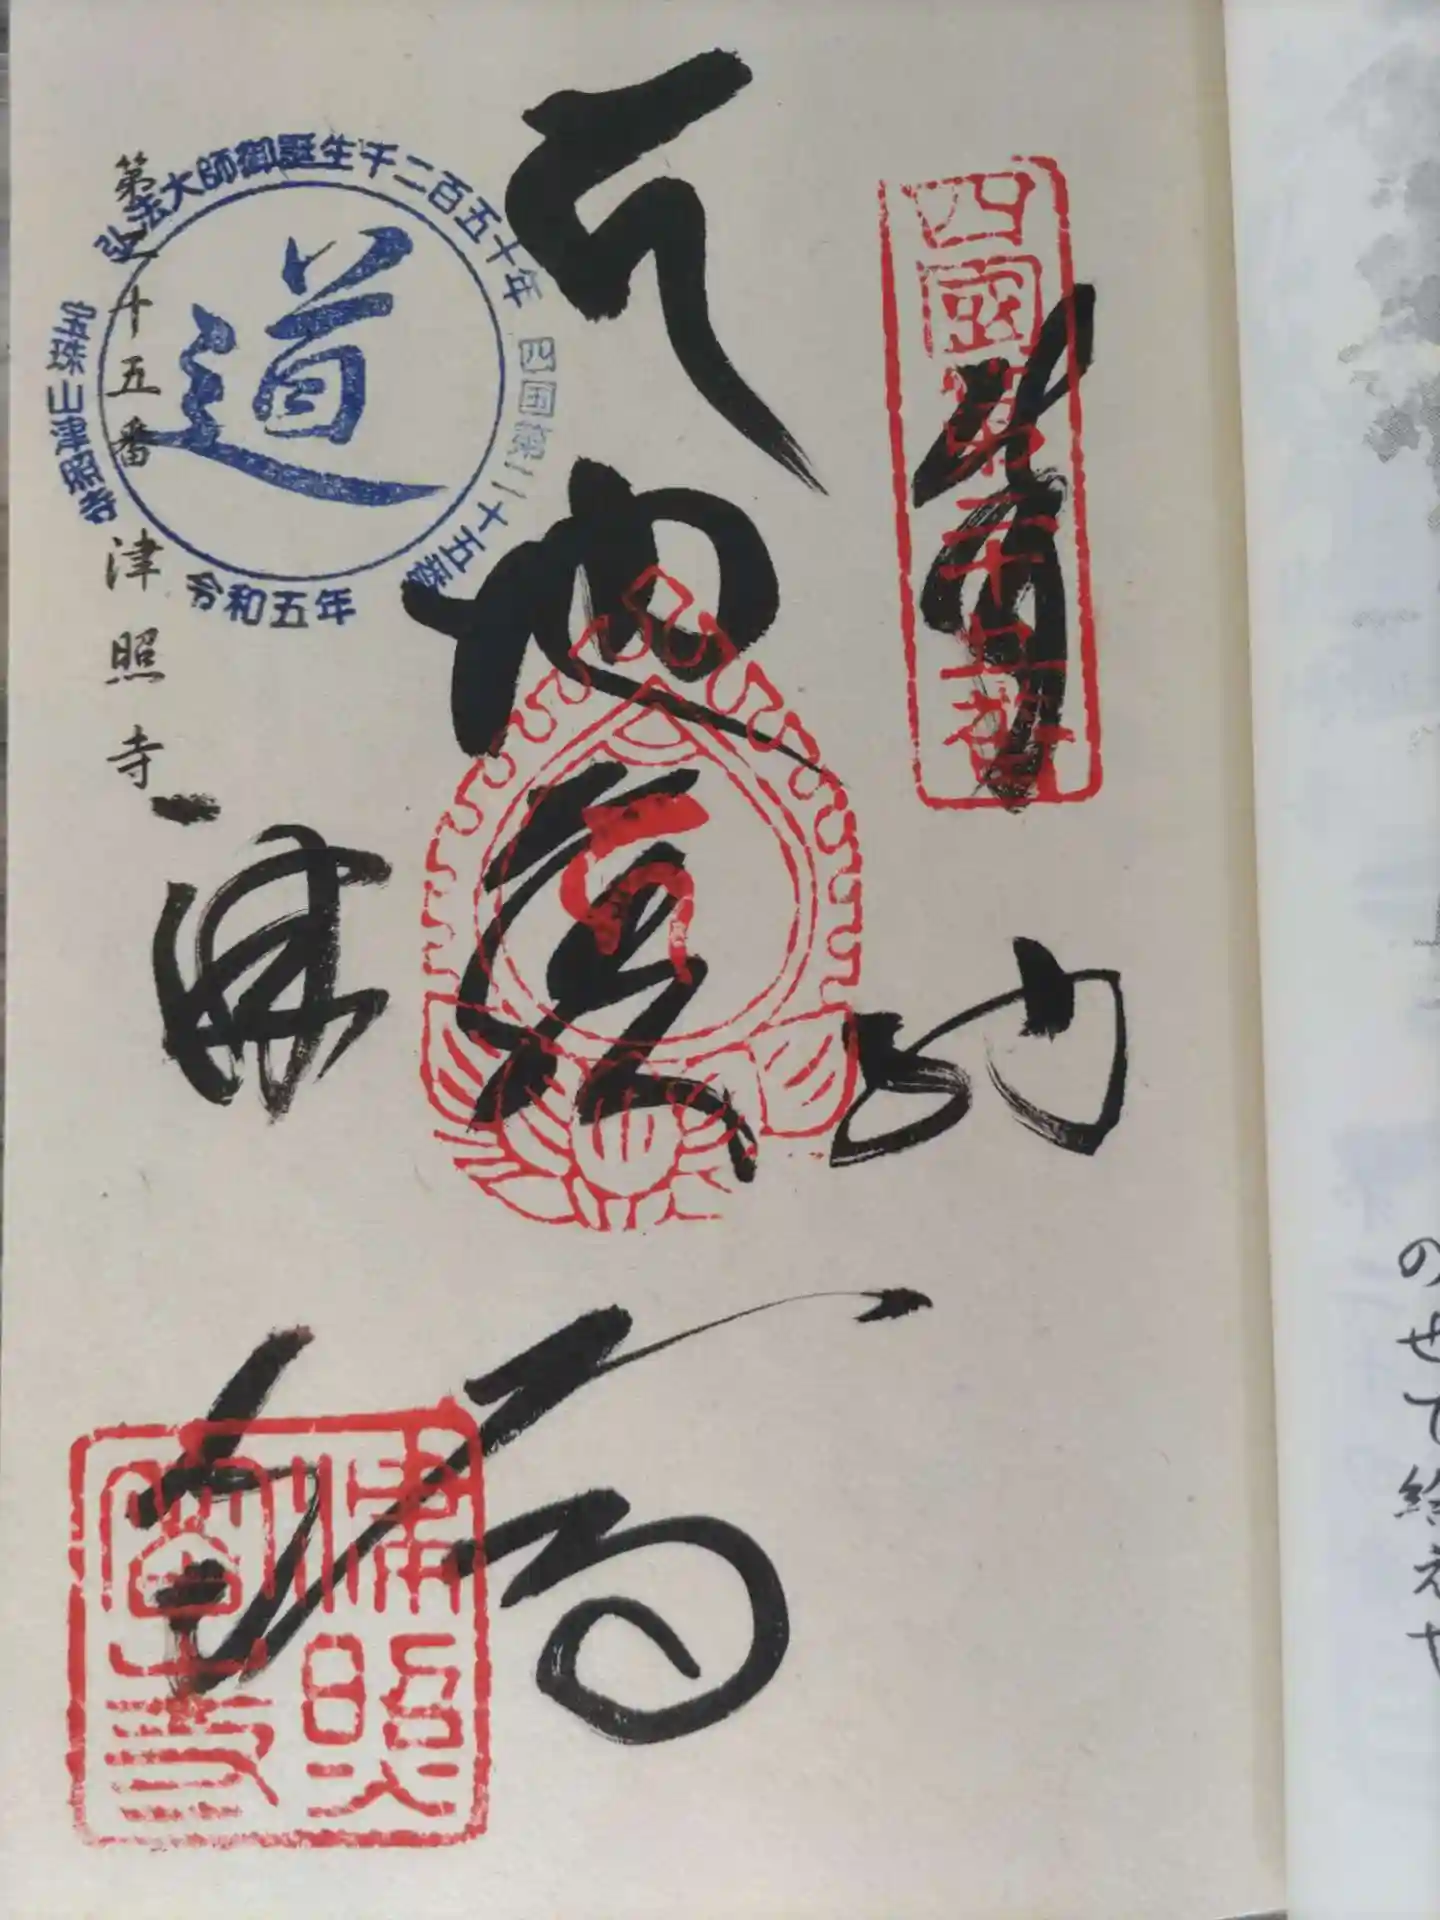 四國第二十五番
奉納
地蔵尊
津寺
第二十五番 津照寺
弘法大師御誕生千二百五十年
四国第二十五番
令和五年
宝珠山津照寺
道
津照
寺
のせて絵えや